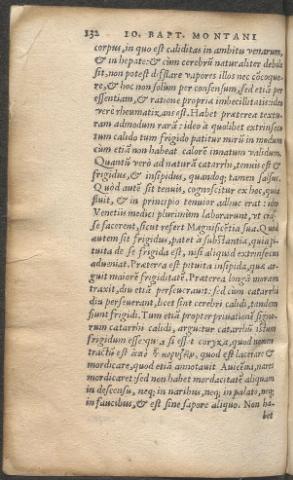 132 IO. BAPT. MONTANI
corpus, in quo est caliditas in ambitu venarum,
& in hepate: & cùm cerebrũ naturaliter debile
sit, non potest dissoluere vapores illos nec cõcoque-
re, & hoc non solùm per consensum, sed etiã per
essentiam, & ratione propriæ imbecillitatis: ideo
verè rheumatizans est. Habet præterea textu-
ram admodum rarã: ideo à quolibet extrinseco
tum calido tum frigido patitur mirũ in modum
cùm etiã non habeat calorẽ innatum validum.
Quantũ verò ad naturã catarrhi, tenuis est &
frigidus, & insipidus, quandoq; tamen salsus.
Quòd autẽ sit tenuis, cognoscitur ex hoc, quia
fluit, & in principio tenuior adhuc erat: 
Venetiis medici plurimùm laborarunt, vt 
se facerent, sicut refert Magnificẽtia sua. Quòd
autem sit frigidus, patet à substantia, quia pi-
tuita de se frigida est, nisi aliquid extrinsecum
adueniat. Præterea est pituita insipida, quæ ar-
guit maiorẽ frigiditatẽ. Præterea longã moram
traxit, diu etiã perseuerauit: sed cùm catarrhi
diu perseuerant, licet sint cerebri calidi, tandem
fiunt frigidi. Tum etiã propter priuationẽ signo-
rum catarrhi calidi, arguitur catarrhũ istum
frigidum esse: quia si esset coryza, quod nomen
tractũ est ἀπὸ quod est lacerare &
mordicare, quod etiã annotauit Auicẽna, nares
mordicaret: sed non habet mordacitatẽ aliquam
in descensu, neq; in naribus, neq; in palato, neq;
in faucibus, & est sine sapore aliquo. Non ha-
bet